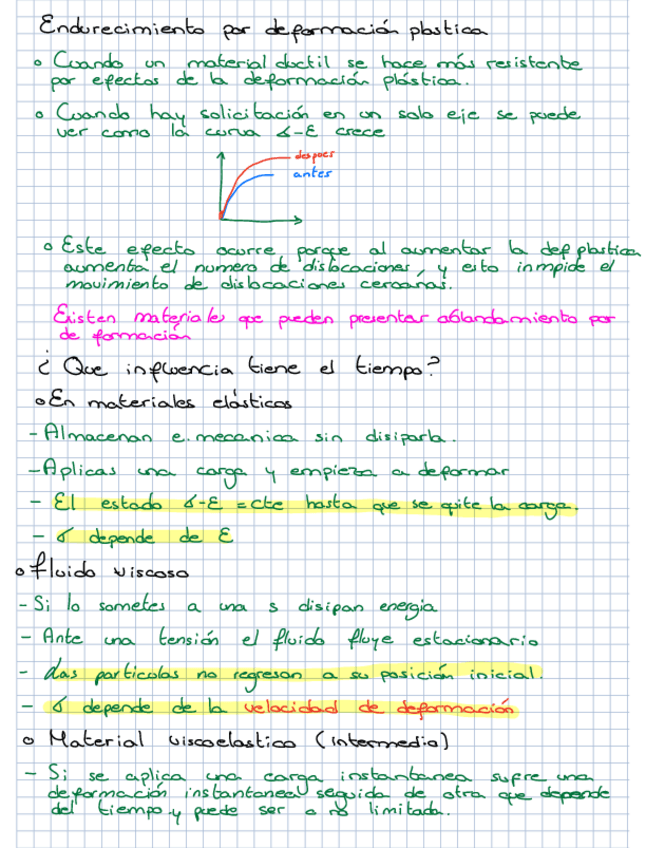 Endurecimiento por deformación plastica
o Cuando un material ductil se hace más resistente
por efectos de la deformación plástica.
o Cuando hay solicitación en un solo eje se puede
ver como la curva σ-ε crece
despues
antes
o Este efecto ocurre porque al aumentar la def plastica
aumenta el numero de dislocaciones, y esto inmpide el
movimiento de dislocaciones cercanas.
Existen materiales que pueden presentar ablandamiento por
de formación
¿ Que influencia tiene el tiempo?
o En materiales elásticos
- Almacenan e. mecanica sin disiparla.
- Aplicas una carga y empieza a deformar
- El estado σ-ε = cte hasta que se quite la carga.
- σ depende de ε
o fluido viscoso
- Si lo sometes a una s disipan energia
- Ante una tensión el fluido fluye estacionario
- Las particulas no regresan a su posición inicial.
- σ depende de la velocidad de deformación
o Material viscoelastico (intermedio)
- Si se aplica una carga instantanea sufre una
deformación instantanea seguida de otra que depende
del tiempo y puede ser o no limitada.